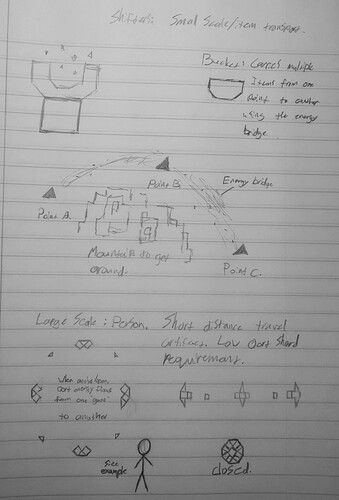 Shifters: Small Scale/item transport.
Bucket: Carries multiple
Items from one
Point to another
using the energy
bridge.
Point B
Energy bridge
Point A.
Mountain to get
around.
Point C.
Large Scale: Person. Short distance travel
artifact. Low Oort Shard
requirement.
When active
Oort energy flows
from one "gate"
to another
Size
example
closed.